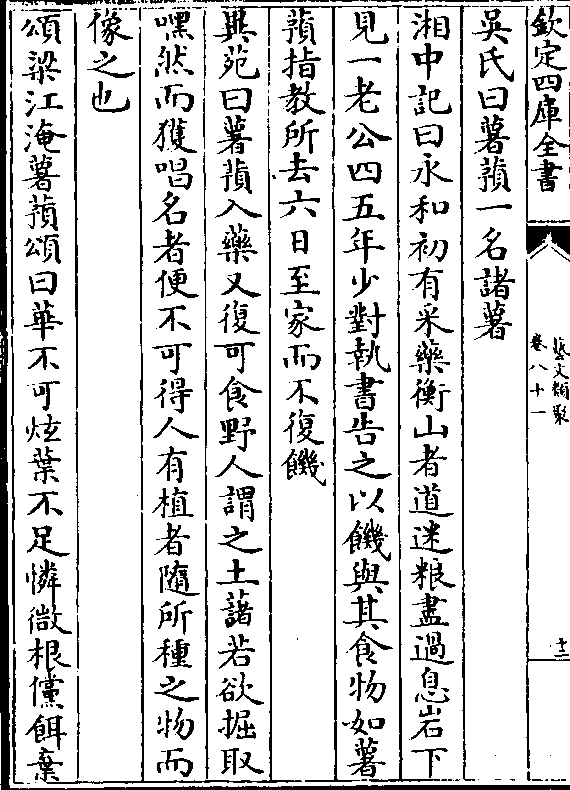 欽定四庫全書
藝文類聚
卷八十一
十二
吳氏曰薯蕷一名諸薯
湘中記曰永和初有采藥衡山者道迷粮盡過息岩下
見一老公四五年少對執書告之以饑與其食物如薯
蕷指教所去六日至家而不復饑
異苑曰薯蕷入藥又復可食野人謂之土藷若欲掘取
嘿然而獲唱名者便不可得人有植者隨所種之物而
像之也
頌梁江淹薯蕷頌曰華不可炫葉不足憐微根儻餌棄